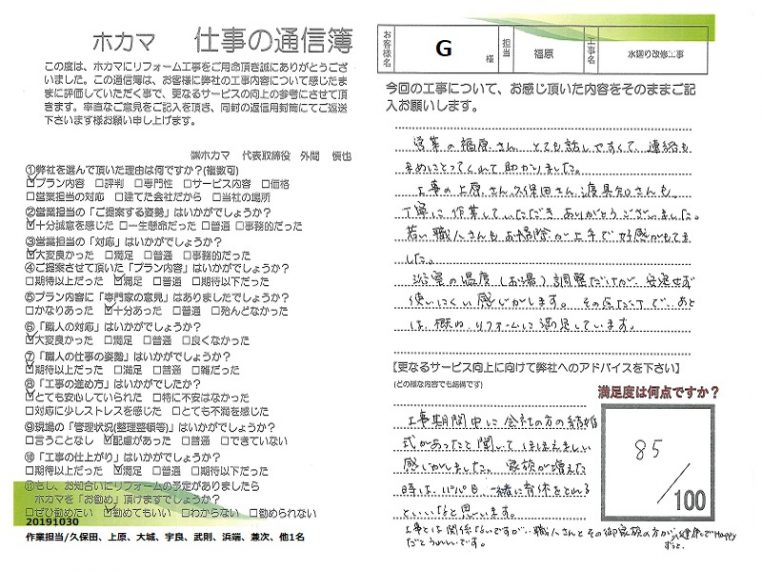 ホカマ 仕事の通信簿
この度は、ホカマにリフォーム工事をご用命頂き誠にありがとうござ
いました。この通信簿は、お客様に弊社の工事内容について感じたま
まに評価していただく事で、更なるサービスの向上の参考にさせて頂
きます。率直なご意見をご記入を頂き、同封の返信用封筒にてご返送
下さいます様お願い申し上げます。
㈱ホカマ 代表取締役 外間
①弊社を選んで頂いた理由は何ですか?(複数可)
☑プラン内容 □評判 □専門性 □サービス内容 □価格
□営業担当の対応 □建てた会社だから □当社の場所
②営業担当の「ご提案する姿勢」はいかがでしょうか?
☑十分誠意を感じた □一生懸命だった □普通 □事務的だった
③営業担当の「対応」はいかがでしょうか?
☑大変良かった □満足 □普通 □事務的だった
④ご提案させて頂いた「プラン内容」はいかがでしょうか?
□期待以上だった ☑満足 □普通 □期待以下だった
⑤プラン内容に「専門家の意見」はありましたでしょうか?
□かなりあった ☑十分あった □普通 □殆んどなかった
⑥「職人の対応」はいかがでしょうか?
☑大変良かった □満足 □普通 □良くなかった
⑦「職人の仕事の姿勢」はいかがでしょうか?
☑期待以上だった □満足 □普通 □雑だった
⑧「工事の進め方」はいかがでしたか?
☑とても安心していられた □特に不安はなかった
□対応に少しストレスを感じた □とても不満を感じた
⑨現場の「管理状況(整理整頓等)」はいかがでしょうか?
□言うことなし ☑配慮があった □普通 □できていない
⑩「工事の仕上がり」はいかがでしょうか?
□期待以上だった ☑満足 □普通 □期待以下だった
⑪もし、お知合いにリフォームの予定がありましたら
ホカマを「お勧め」頂けますでしょうか?
□ぜひ勧めたい ☑勧めてもいい □わからない □勧められない
20191030
作業担当/久保田、上原、大城、宇良、武則、浜端、兼次、他1名
お客様名 G 様 担当 福原 工事名 水廻り改修工事
今回の工事について、お感じ頂いた内容をそのままご記
入お願いします。
営業の福原さん とても話しやすくて、連絡も
まめにとってくれて助かりました。
工事の上原さん、久保田さん、渡具知さんも、
丁寧に作業していただきありがとうございました。
若い職人さんもお掃除が上手で好感がもてま
した。
浴室の温度(お湯)調整だけが、安定せず
使いにくい感じがします。その点だけで、あと
は、概ね、リフォームに満足しています。
【更なるサービス向上に向けて弊社へのアドバイスを下さい】
(どの様な内容でも結構です)
工事期間中に会社の方の結婚
式があったと聞いてほほえましい
感じがしました。家族が増えた
時は、パパも一緒に育休をとれる
といいなと思います。
工事とは関係ないですが、職人さんとその御家族の方が、健康でHappy
だとうれしいです。
満足度は何点ですか?
85/100